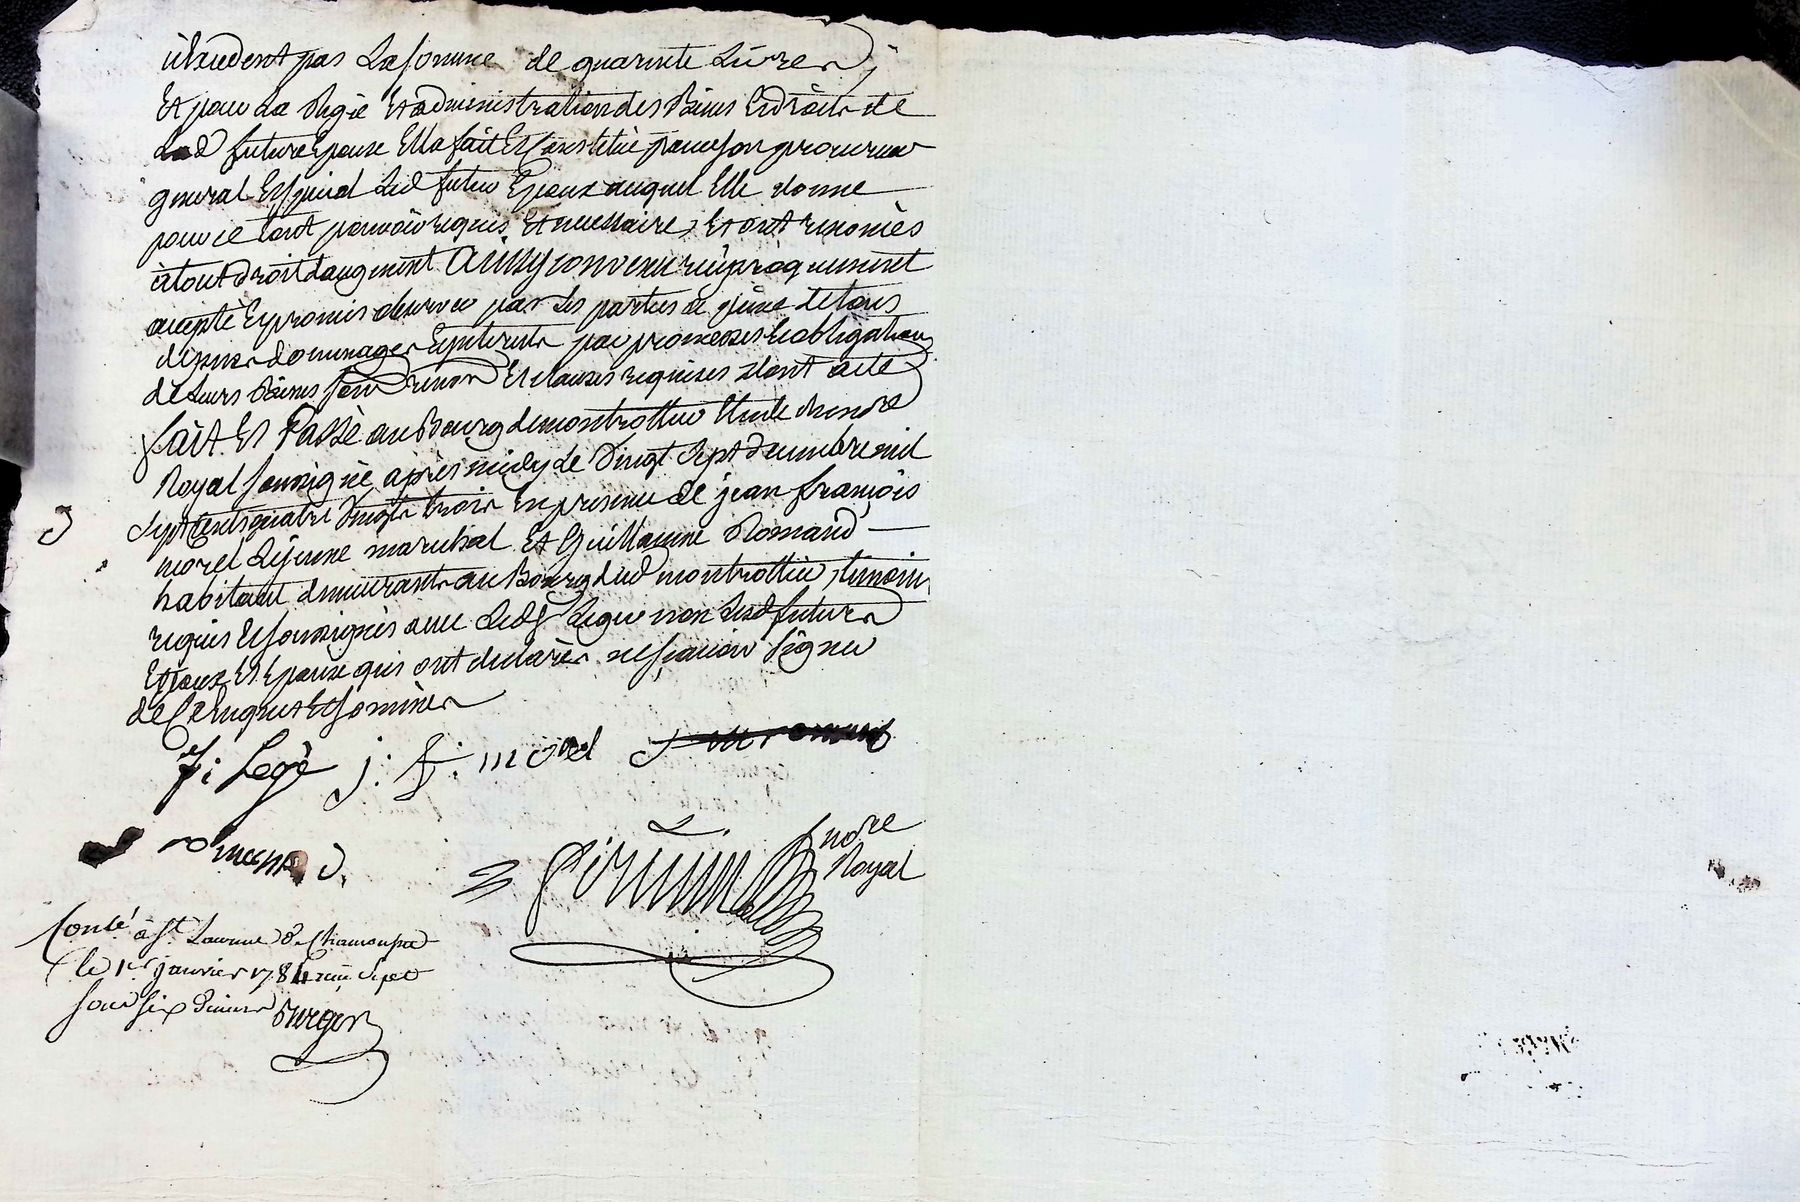 n'Excedent pas La somme de quarente Livres,
Et pour La Regie Et administration des Biens Et droits de
Lad future Epouse Elle fait Et Constitue pour son procureur
general Et special Led futur Epoux auquel Elle donne
pour ce tout pouvoir requis Et necessaire, Et ont renoncés
à tout droit d'augment Ainsy convenu reciproquement
accepté Et promis observer par Les parties a peine de tous
depens dommages Et interets par promesses Et obligations
de Leurs Biens Et clauses requises dont acte
fait Et Passé au Bourg de montrottier Etude du no.re
Royal soussigné après midy Le Vingt Sept decembre mil
Sept Cents quatre Vingts trois En presence de jean françois
morel Lejeune marechal Et Guillaume Romand
habitant demeurants au Bourg dud montrottier, temoins
requis Et soussignés avec Led Legé non Lesd futurs
Epoux Et Epouse qui ont declarés ne sçavoir Signer
de Ce Enquis Et sommés
Legé j: f: morel
romand
no.re
Royal
Conlé à St Laurent de Chamousset
le 1er janvier 1784 Sept
sous six deniers